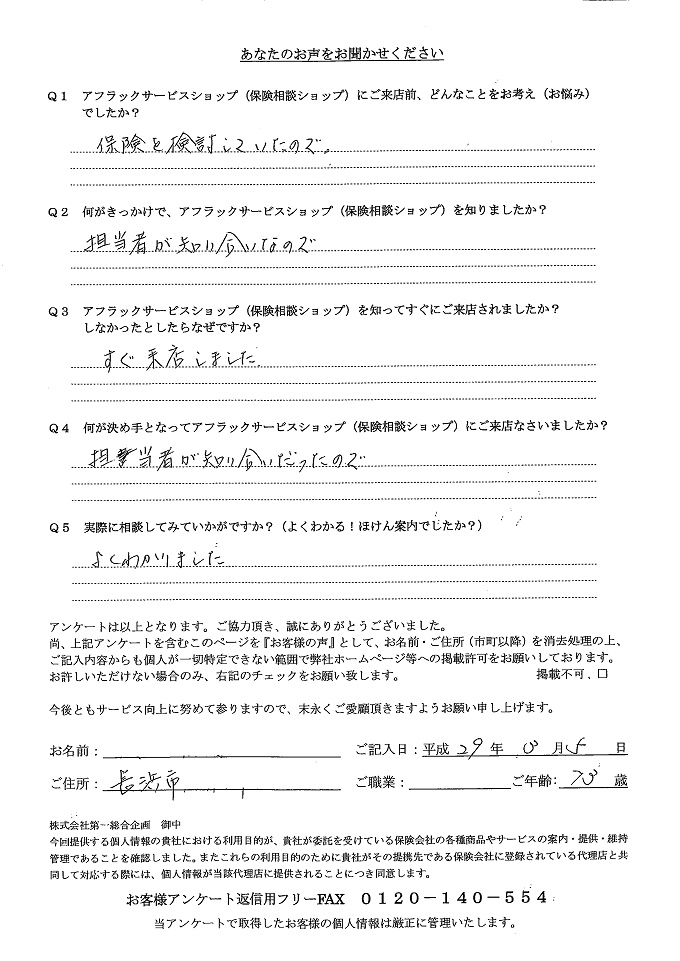 あなたのお声をお聞かせください
Q1 アフラックサービスショップ（保険相談ショップ）にご来店前、どんなことをお考え（お悩み）
でしたか？
保険を検討していたので。
Q2 何がきっかけで、アフラックサービスショップ（保険相談ショップ）を知りましたか？
担当者が知り合いなので
Q3 アフラックサービスショップ（保険相談ショップ）を知ってすぐにご来店されましたか？
しなかったとしたらなぜですか？
すぐ来店しました。
Q4 何が決め手となってアフラックサービスショップ（保険相談ショップ）にご来店なさいましたか？
担当者が知り合いだったので
Q5 実際に相談してみていかがですか？（よくわかる！ほけん案内でしたか？）
よくわかりました
アンケートは以上となります。ご協力頂き、誠にありがとうございました。
尚、上記アンケートを含むこのページを『お客様の声』として、お名前・ご住所（市町以降）を消去処理の上、
ご記入内容からも個人が一切特定できない範囲で弊社ホームページ等への掲載許可をお願いしております。
お許しいただけない場合のみ、右記のチェックをお願い致します。 掲載不可、□
今後ともサービス向上に努めて参りますので、末永くご愛顧頂きますようお願い申し上げます。
お名前： ご記入日：平成 29 年 月 5 日
ご住所：長浜市 ご職業： ご年齢： 歳
株式会社第一総合企画 御中
今回提供する個人情報の貴社における利用目的が、貴社が委託を受けている保険会社の各種商品やサービスの案内・提供・維持
管理であることを確認しました。またこれらの利用目的のために貴社がその提携先である保険会社に登録されている代理店と共
同して対応する際には、個人情報が当該代理店に提供されることにつき同意します。
お客様アンケート返信用フリーFAX 0120－140－554
当アンケートで取得したお客様の個人情報は厳正に管理いたします。